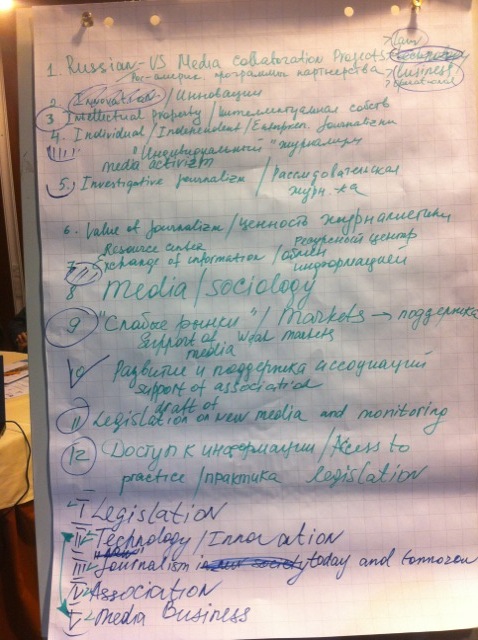 > Law
1. Russian-US Media Collaboration Projects > technology
Рос-америк. программы партнерства > business
> educational
2. Innovation / Инновации
3 Intellectual property / интеллектуальная собств
4. Individual / Independent / Entepren. Journalizm
"Индивидуальный" журнализм
media activizm
5. Investigative journalizm / Расследовательская
журн-ка
6. Value of Journalizm / ценность журналистики
Resource center Ресурсный центр
7 Exchange of information / обмен
информацией
8 Media / sociology
9 "Слабые рынки" / Markets → поддержка
Support of weak markets
media
10 Развитие и поддержка ассоциаций
support of association
draft of
11 Legislation on new media and monitoring
12 Доступ к информации / Access to
practice / практика legislation
I Legislation
II Technology / Innovation
III Journalism in today and tomorrow
Association
Media Business